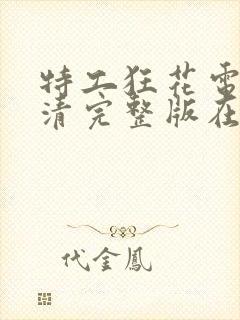 特工狂花电
清完整版在
代金鳳